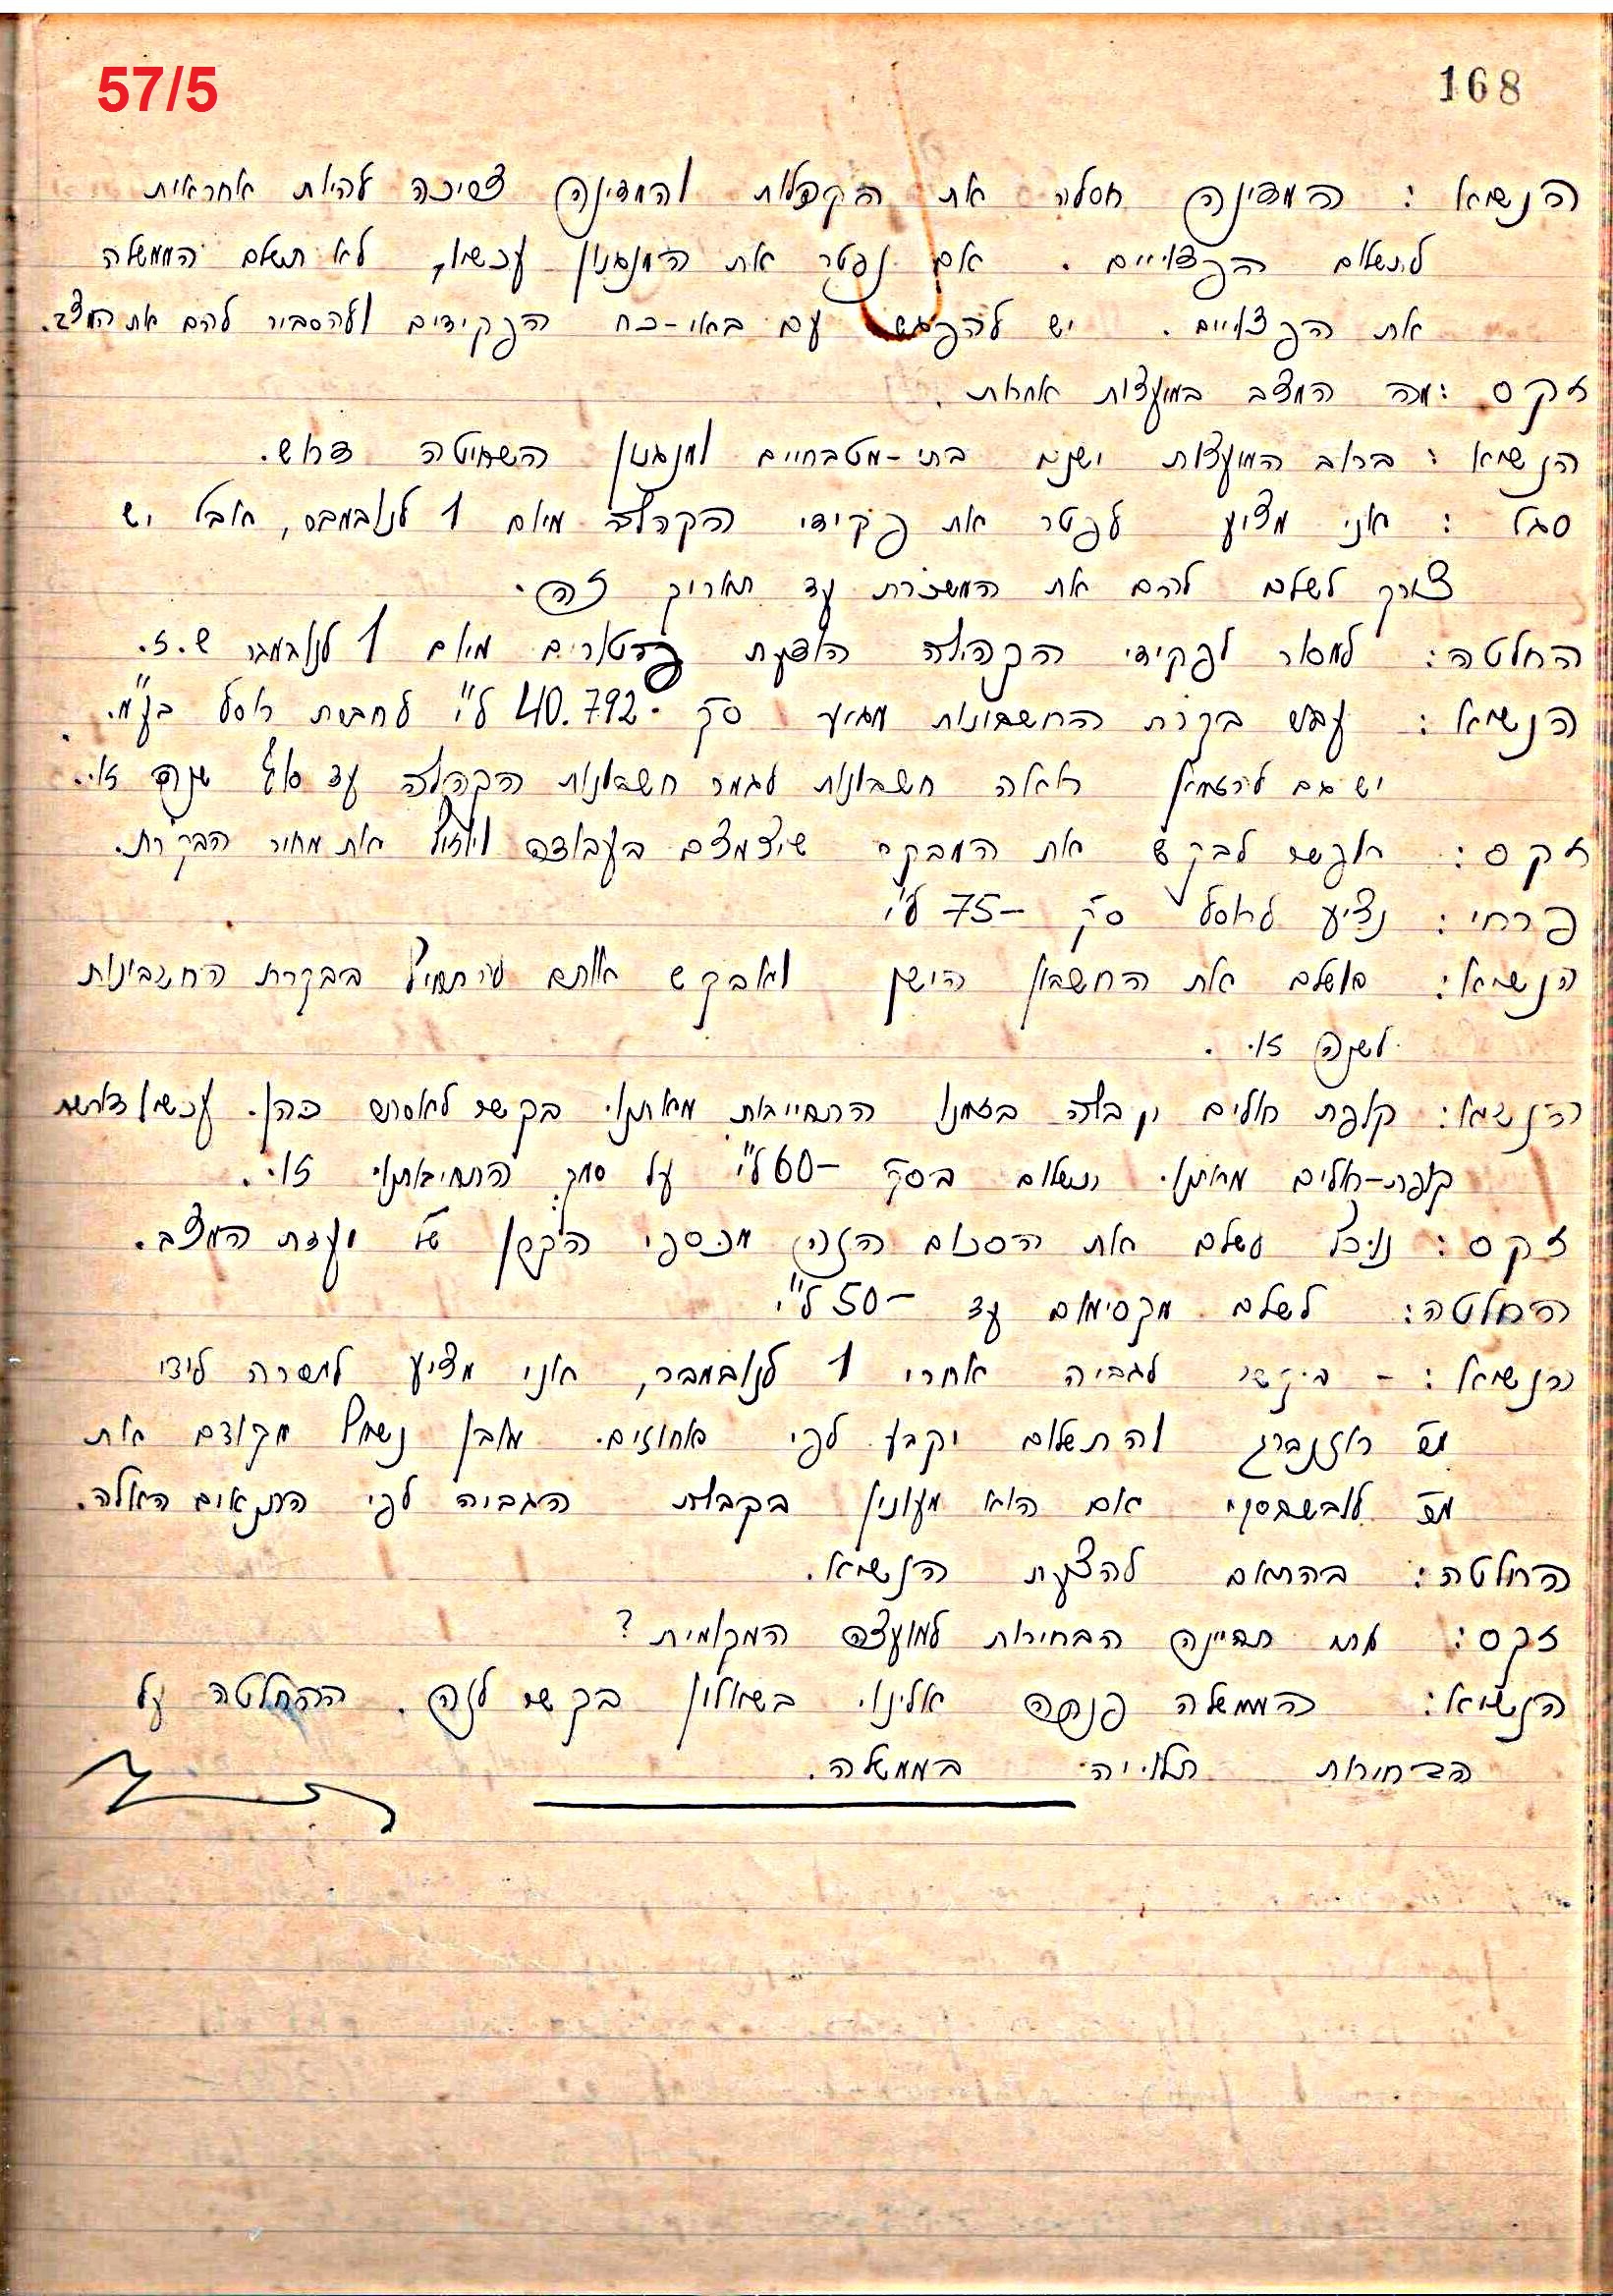 57/5
168
הנשיא: המדינה חסלה את הקהלות והמדינה צריכה להיות אחראית
לתשלום הפצויים. אם נפטר את המנגנון עכשיו, לא תשלם הממשלה
את הפצויים. יש להפגש עם באי-כח הפקידים ולהסביר להם את המצב.
זקס: מה המצב במועצות אחרות.
הנשיא: ברוב המועצות ישנם בתי-מטבחיים ומנגנון השחיטה דרוש.
סגל: אני מציע לפטר את פקידי הקהלה מיום 1 לנובמבר, אבל יש
צורך לשלם להם את המשכורת עד תאריך זה.
החלטה: למסור לפקידי הקהילה הודעת פיטורים מיום 1 לנובמבר ש.ז.
הנשיא: עבור בקרת החשבונות מגיע סך 40.792 ל"י לחברת ראסל בע"מ.
יש גם רואה חשבונות לגמר חשבונות הקהלה עד סוף שנה זו.
זקס: אפשר לבקש את המבקר שיצמצם בעבודה ויוזיל את מחיר הבקרת.
פרחי: נציע לראסל סך 75- ל"י
הנשיא: נשלם את החשבון הישן ואבקש אותם להתחיל בבקרת החשבונות
לשנה זו.
הנשיא: קופת חולים קבלה בזמנו התחייבות מאתנו בקשר כהן. עכשיו דורשת
קופת-חולים מאתנו תשלום בסך 60- ל"י על סמך התחיבותנו זו.
זקס: נוכל לשלם את הסכום הזה מכספי הקרן של ועדת המצב.
החלטה: לשלם מקסימום עד 50- ל"י
הנשיא: - בקשר לגביה אחרי 1 לנובמבר, אני מציע למסרה לידי
מר רוזנברג והתשלום יקבע לפי אחוזים. מובן נשאל מקודם את
מר אם הוא מעונין בקבלת הגביה לפי התנאים האלה.
החלטה: בהתאם להצעת הנשיא.
זקס: מתי תהיינה הבחירות למועצה המקומית?
הנשיא: הממשלה פנתה אלינו בשאלון בקשר לזה. ההחלטה על
הבחירות תלויה בממשלה.